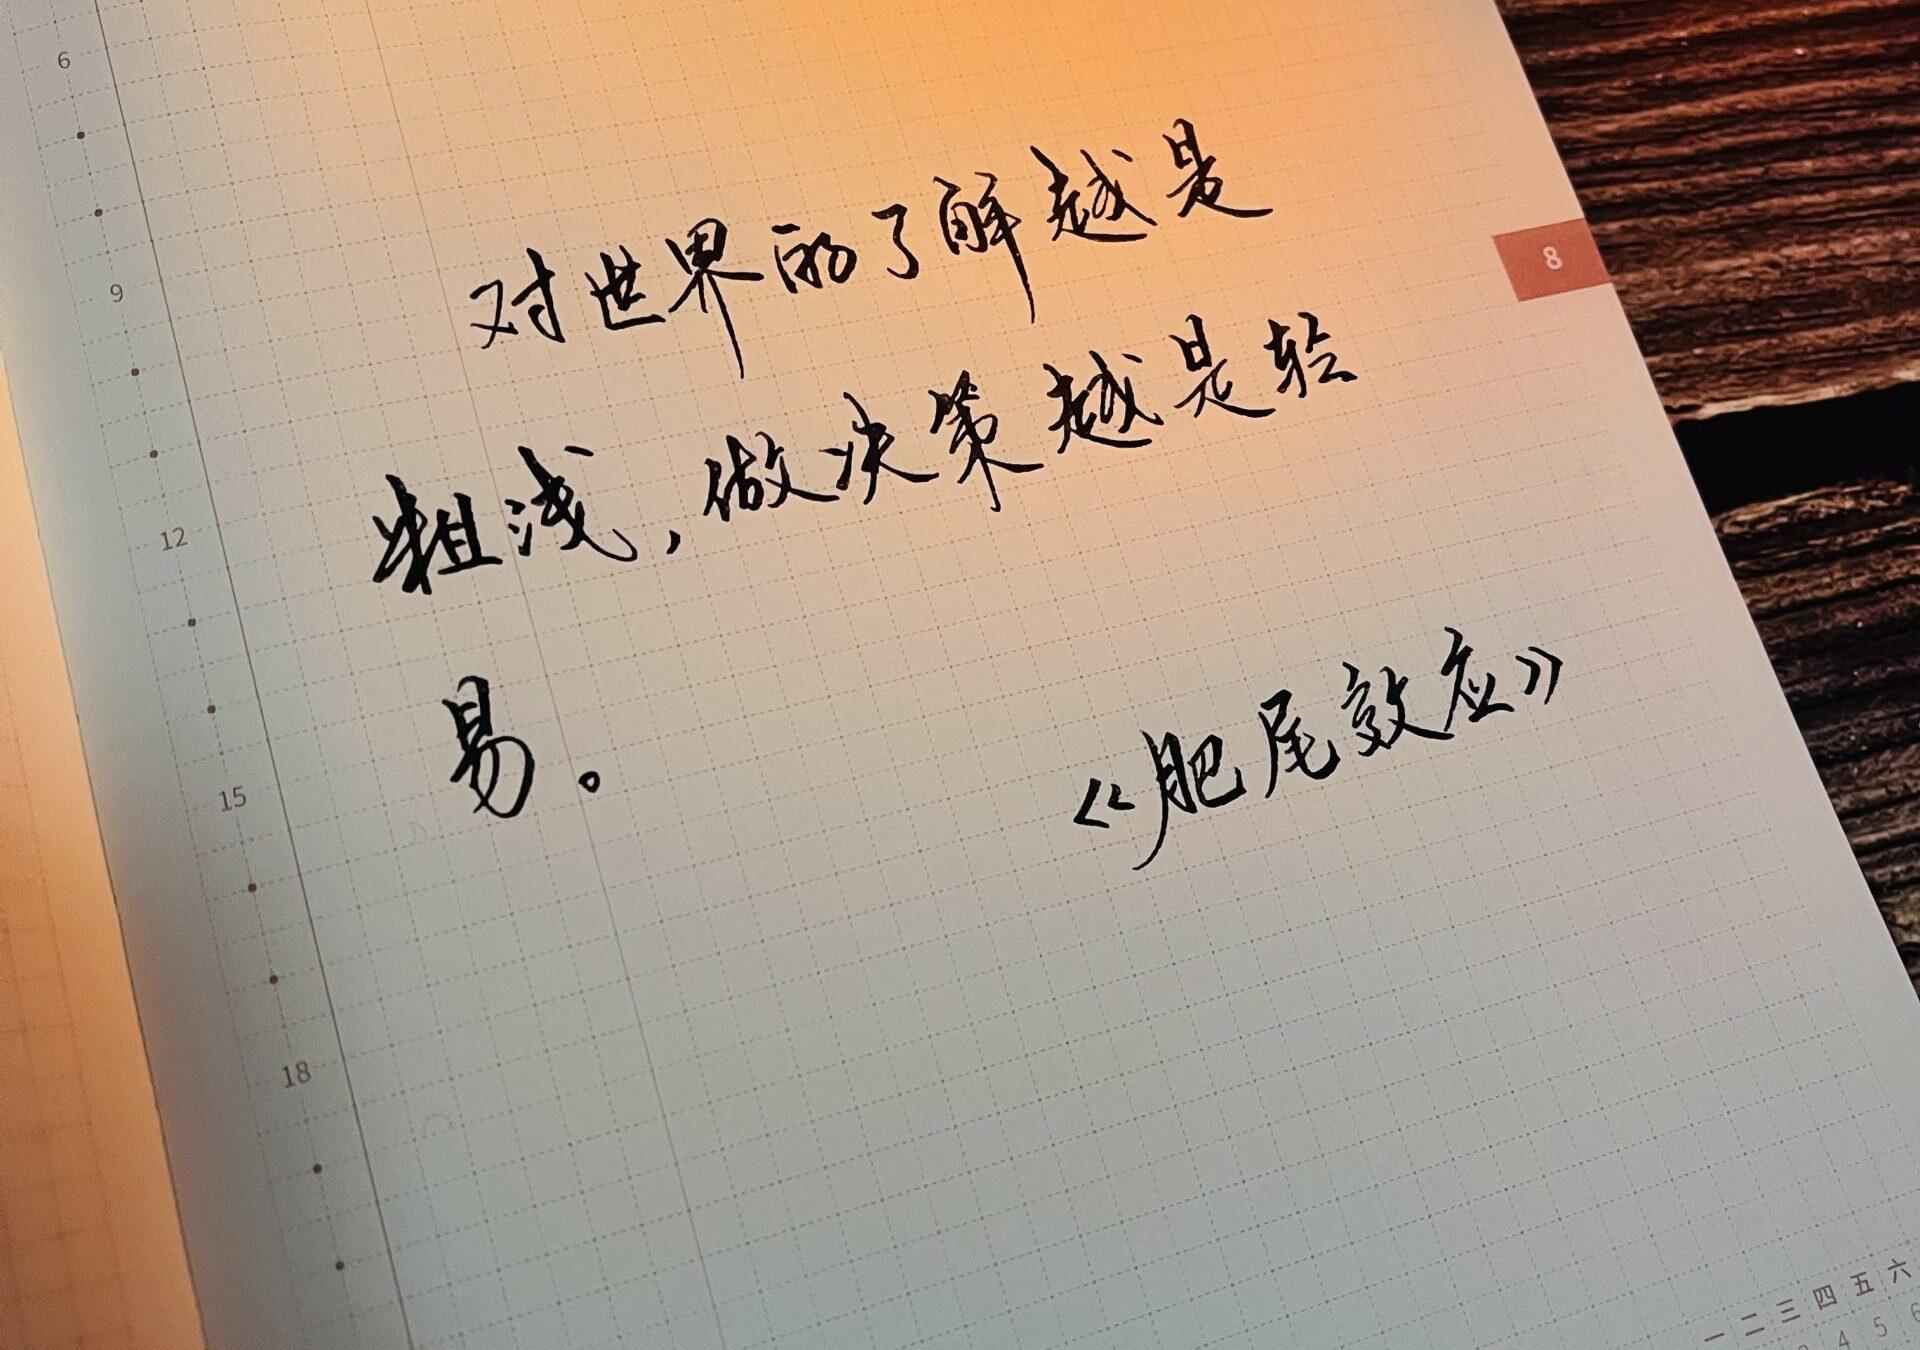 对世界的了解越是
粗浅，做决策越是轻
易。
《肥尾效应》
6
9
12
15
18
8
一 二 三 四 五 六
4 5 6